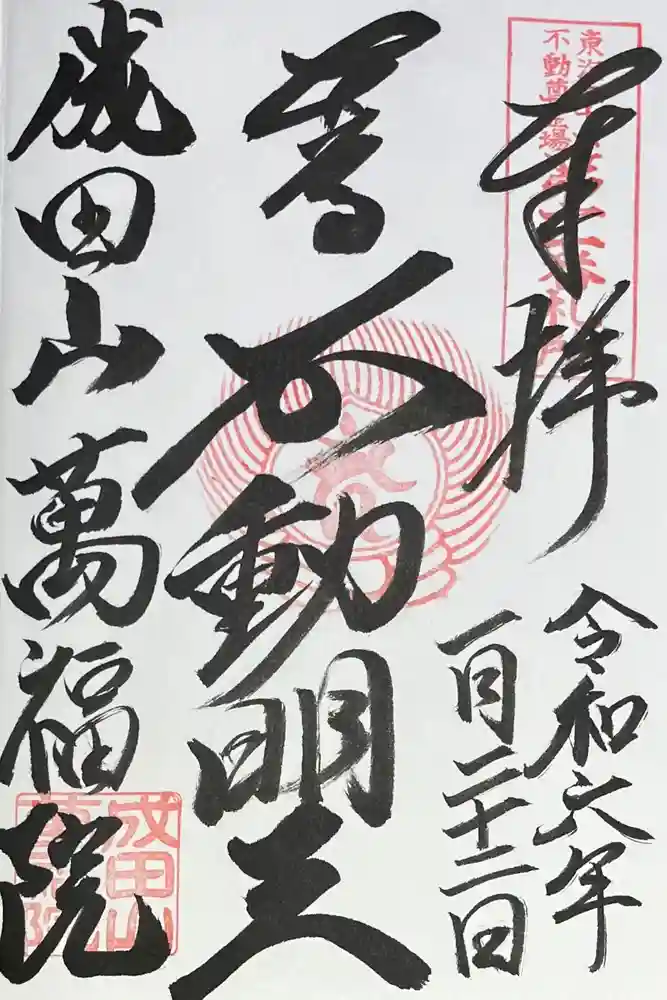 奉拝
令和六年
一月二十二日
不動明王
成田山萬福院
不動尊霊場
成田山
萬福院